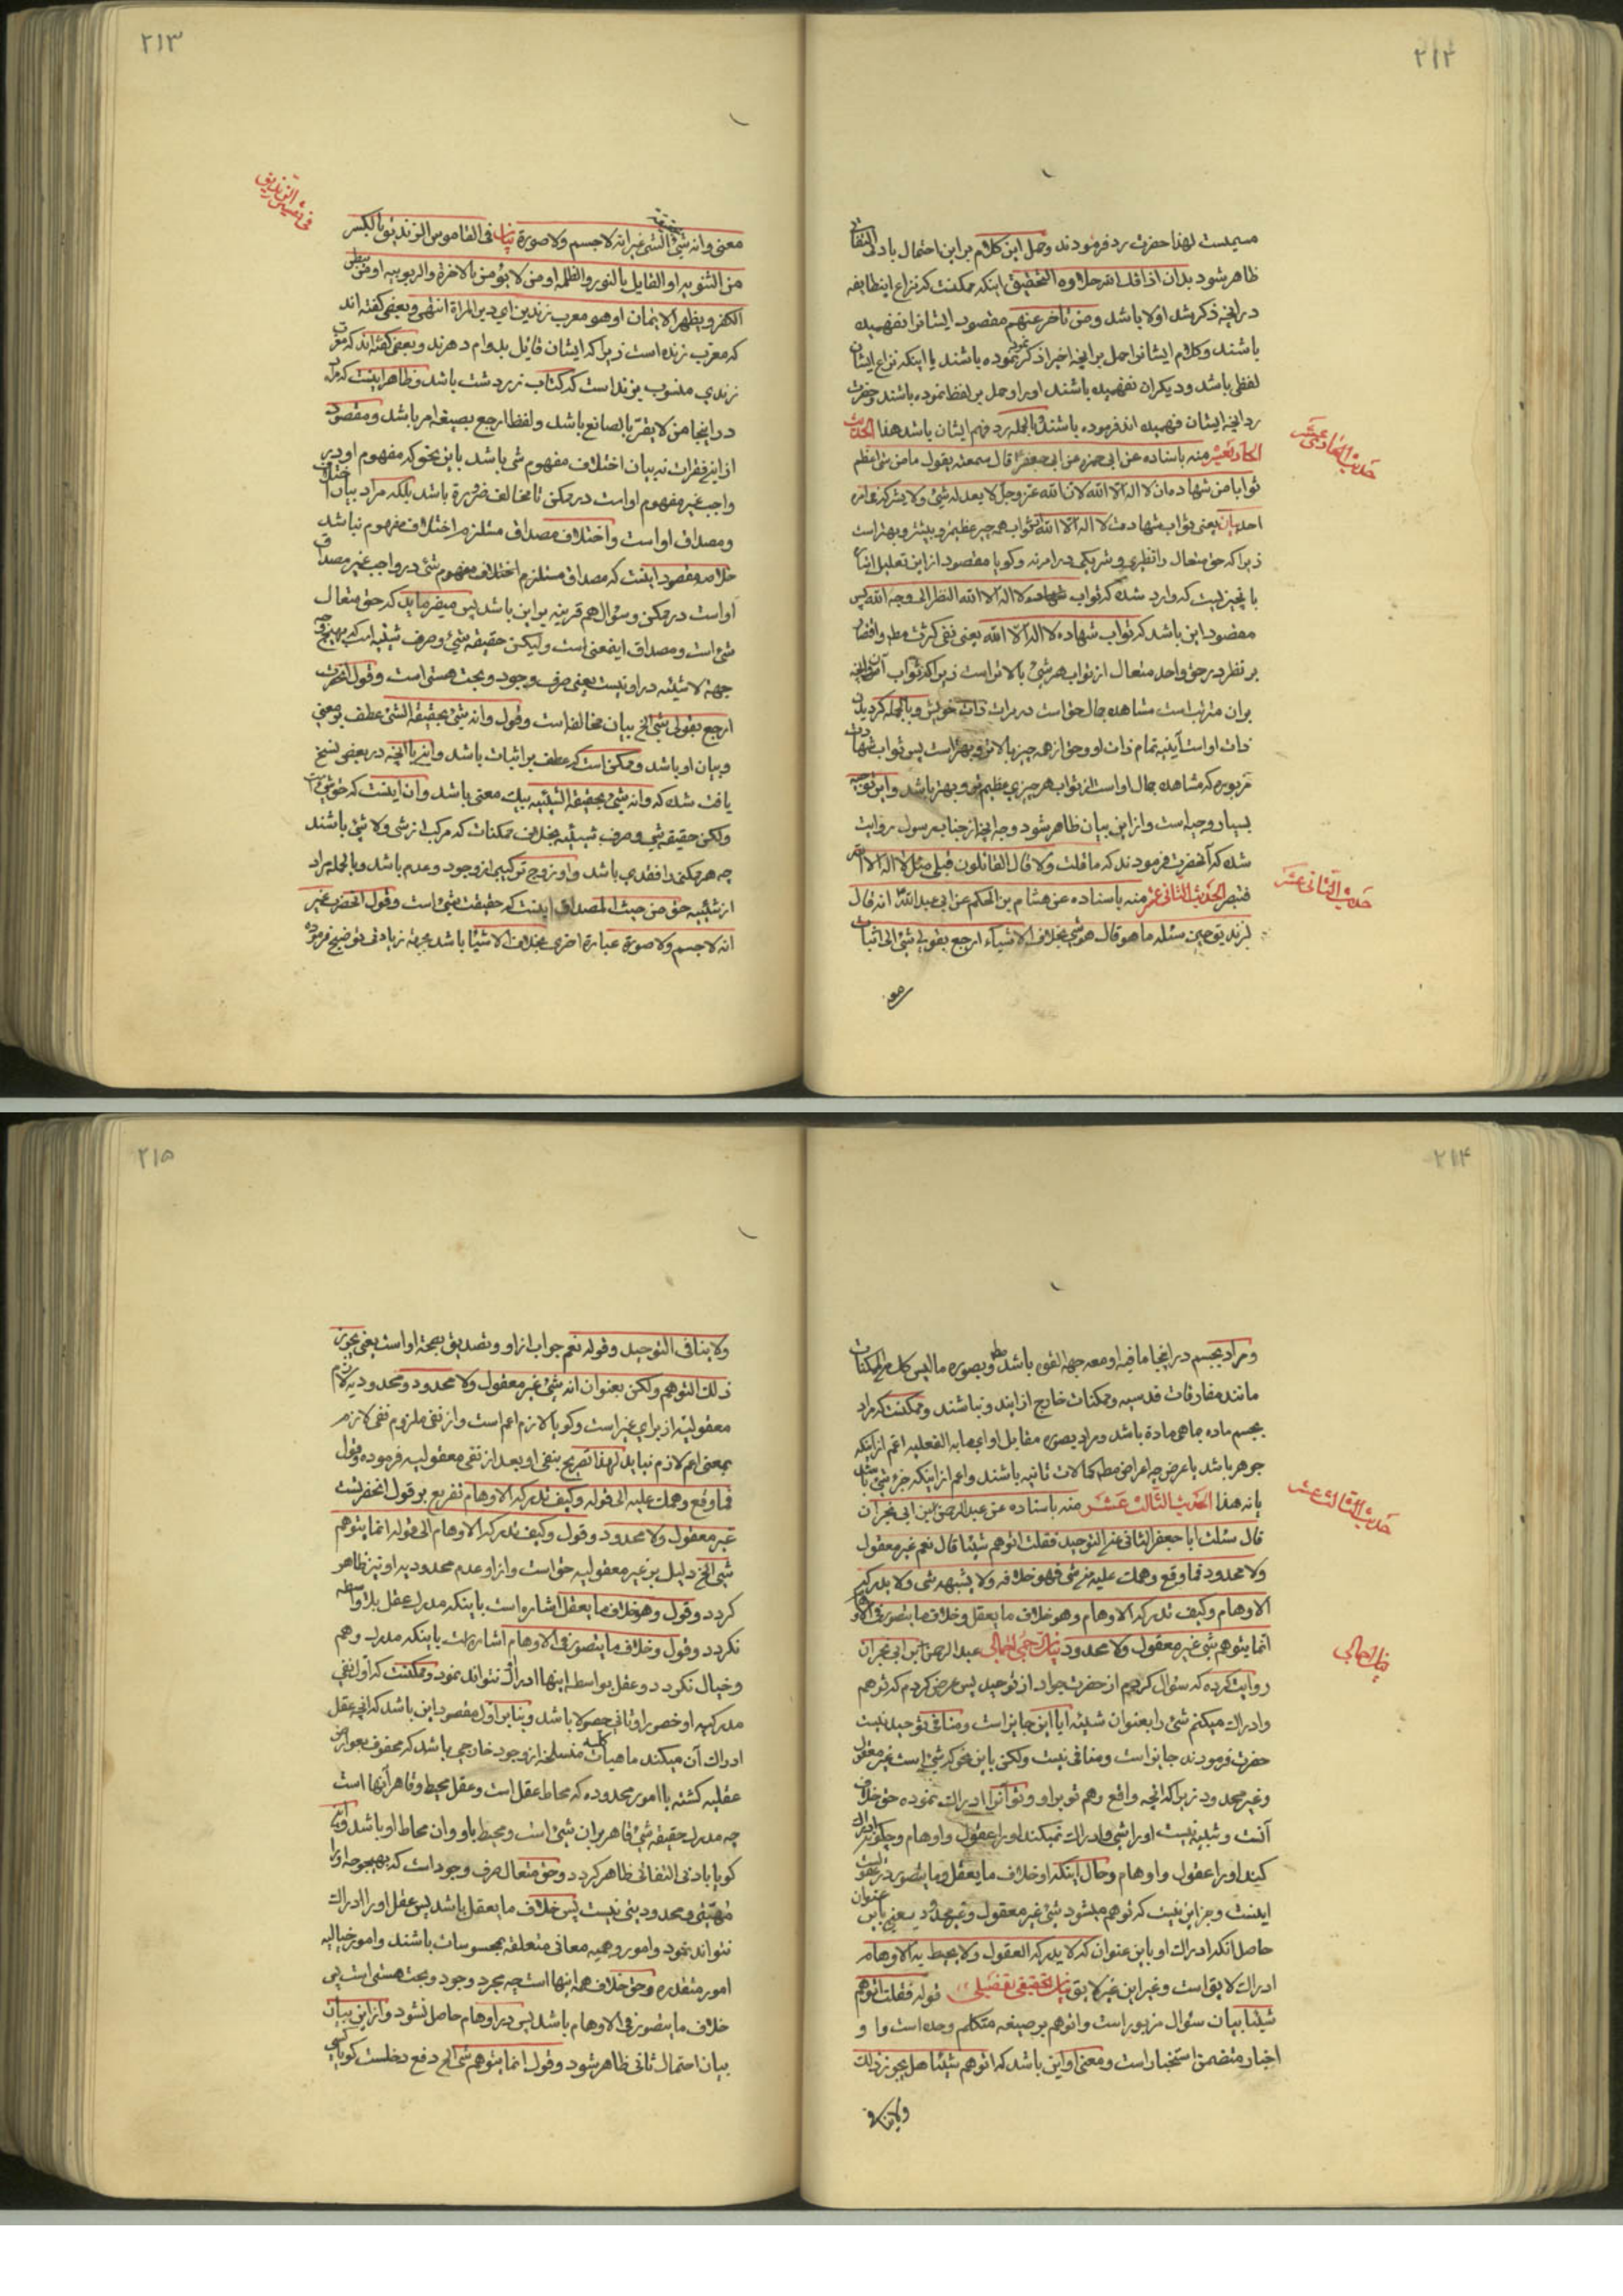 ۲۱۲
مسیمست لهذا حضرت رد فرمودند وحمل این کلام بر این احتمال بادنی التفاتی
ظاهر شود بدان اذاقك الله حلاوة التحقیق اینکه ممکنست که نزاع اینطایفه
در آنچه ذکر شد اولا باشد ومن تأخر عنهم مقصود ایشانرا نفهمیده
باشند وکلام ایشانرا حمل بر آنچه اخیرا ذکر نموده باشند یا اینکه نزاع ایشان
لفظی باشد ودیکران نفهمیده باشند اورا وحمل بر لفظ نموده باشند وحضرت
رد آنچه ایشان فهمیده اند فرموده باشند وبالجمله رد فهم ایشان باشد هذا الحدیث
الحادیعشر منه باسناده عن ابی حمزه عن ابی جعفر قال سمعته یقول ما من شئ اعظم
ثوابا من شهادة ان لا اله الا الله لان الله عز وجل لا یعدله شئ ولا یشرکه فی امره
احد بیان یعنی ثواب شهادت لا اله الا الله از ثواب همه چیز عظیمتر وبیشتر وبهتر است
زیرا که حق متعال را نظیری وشریکی در امر نه وکویا مقصود از این تعلیل اشاره
بانچیزیست که وارد شده که ثواب شهاده لا اله الا الله النظر الی وجه الله پس
مقصود این باشد که ثواب شهاده لا اله الا الله یعنی نفی کثرت مط واقتصار
بر نظر در حق واحد متعال از ثواب هر شئ بالاتر است زیرا که ثواب آن وآنچه
بر ان مترتب است مشاهده جمال حق است در مرات ذات خویش وبالجمله کردیدن
ذات اوست آینه تمام ذات او وحق از همه چیز بالاتر وبهتر است پس ثواب شهادت
مزبوره که مشاهده جمال اوست از ثواب هر چیزی عظیم تر وبهتر باشد واین توجیه
بسیار وجیه است واز این بیان ظاهر شود وجه آنچه از جناب رسول روایت
شده که آنحضرت فرمودند که ما قلت ولا قال القائلون قبلی مثل لا اله الا الله
فتبصر الحدیث الثانی عشر منه باسناده عن هشام بن الحکم عن ابی عبدالله انه قال
لزندیق حین سئله ما هو قال هو شئ بخلاف الاشیاء ارجع بقولی شئ الی اثبات
معنی
حدیث الحادی عشر
حدیث الثانی عشر
۲۱۳
معنی وانه شئ بحقیقة الشئ غیر انه لا جسم ولا صورة بیان فی القاموس الزندیق بالکسر
من الثنویه او القایل بالنور والظلمه او من لا یؤمن بالاخرة والربوبیه او من یبطن
الکفر ویظهر الایمان او هو معرب زن دین ای دین المراة انتهی وبعضی کفته اند
که معرب زنده است زیرا که ایشان قایل بدوام دهرند وبعضی کفته اند که معرب
زندی منسوب بزند است که کتاب زردشت باشد وظاهر اینست که مراد
در اینجا من لا یقر بالصانع باشد ولفظ ارجع بصیغه امر باشد ومقصود
از این فقرات نه بیان اختلاف مفهوم شئ باشد باین نحو که مفهوم او در
واجب غیر مفهوم اوست در ممکن تا مخالف ضرورة باشد بلکه مراد بیان اختلاف
ومصداق اوست واختلاف مصداق مستلزم اختلاف مفهوم نباشد
خلاصه مقصود اینست که مصداق مستلزم اختلاف مفهوم شئ در واجب غیر مصداق
اوست در ممکن وسؤال هم قرینه بر این باشد پس میفرماید که حق متعال
شئ است ومصداق اینمعنی است ولیکن حقیقة شئ وصرف شیئیه است که بهیچ وجه
جهة لا شیئیه در او نیست یعنی صرف وجود وبحت هستی است وقول آنحضرت
ارجع بقولی شئ الخ بیان مخالفه است وقول وانه شئ بحقیقة الشئ عطف بر معنی
وبیان او باشد وممکن است که عطف بر اثبات باشد واین با آنچه در بعضی نسخ
یافت شده که وانه شئ بحقیقة الشیئیه بیك معنی باشد وان اینست که حق شئ است
ولکن حقیقة شئ وصرف شیئیه بخلاف ممکنات که مرکب از شئ ولا شئ باشند
چه هر ممکنی را فقدی باشد واو زوج ترکیبی از وجود وعدم باشد وبالجمله مراد
از شیئیه حق من حیث المصداق اینست که حقیقت شئ است وقول آنحضرت غیر
انه لا جسم ولا صورة عبارة اخری بخلاف الاشیاء باشد بجهة زیادتی توضیح فرموده
فی تفسیر الزندیق
۲۱۴
ومراد بجسم در اینجا ما فیه او معه جهة القوه باشد مط وبصوره ما لیس کك من الممکنات
مانند مفارقات قدسیه وممکنات خارج از ایندو نباشند وممکنست که مراد
بجسم ماده بما هی مادة باشد ومراد بصوره مقابل او ای ما به الفعلیه اعم از اینکه
جوهر باشد یا عرض چه اعراض مط کمالات ثانیه باشند واعم از اینکه جزء شئ باشد
یا نه هذا الحدیث الثالث عشر منه باسناده عن عبدالرحمن ابن ابی نجران
قال سئلت ابا جعفر الثانی عن التوحید فقلت اتوهم شیئا قال نعم غیر معقول
ولا محدود فما وقع وهمك علیه من شئ فهو خلافه ولا یشبهه شئ ولا یدرکه
الاوهام وکیف تدرکه الاوهام وهو خلاف ما یعقل وخلاف ما یتصور فی الاوهام
انما یتوهم شئ غیر معقول ولا محدود بیان جملی اجمالی عبدالرحمن ابن ابی نجران
روایت کرده که سئوال کردم از حضرت جواد از توحید پس عرض کردم که توهم
وادراك میکنم شئ را بعنوان شیئیه ایا این جایز است ومنافی توحید نیست
حضرت فرمودند جایز است ومنافی نیست ولکن باین نحو که شئ است غیر معقول
وغیر محدود زیرا که آنچه واقع وهم تو بر او وتو آنرا ادراك نموده حق خلاف
آنست وشبیه نیست اورا شئ وادراك نمیکند اورا عقول واوهام وچکونه ادراك
کیند اورا عقول واوهام وحال اینکه او خلاف ما یعقل وما یتصور در عقول است
اینست وجز این نیست که توهم میشود شئ غیر معقول وغیر محدود یعنی باین عنوان
حاصل آنکه ادراك او باین عنوان که لا یدرکه العقول ولا یحیط به الاوهام
ادراك لایق است وغیر این غیر لایق بیان تحقیقی تفضیلی قوله فقلت اتوهم
شیئا بیان سئوال مزبور است واتوهم بر صیغه متکلم وحده است وا و
اخبار متضمن استخبار است ومعنی او این باشد که اتوهم شیئا هل یجوز ذلك
ولا ینافی
حدیث الثالث عشر
بیان اجمالی
۲۱۵
ولا ینافی التوحید وقوله نعم جواب از او وتصدیق بصحة اوست یعنی یجوز
ذلك التوهم ولکن بعنوان انه شئ غیر معقول ولا محدود ومحدودیه لازم
معقولیة از برای غیر است وکویا لازم اعم است واز نفی ملزوم نفی لازم
بمعنی اعم لازم نیاید لهذا تصریح بنفی او بعد از نفی معقولیه فرموده وقول
فما وقع وهمك علیه الی قوله وکیف تدرکه الاوهام تفریع بر قول آنحضرتست
غیر معقول ولا محدود وقول وکیف تدرکه الاوهام الی قوله انما یتوهم
شئ الخ دلیل بر غیر معقولیه حق است واز او عدم محدودیه او نیز ظاهر
کردد وقول وهو خلاف ما یعقل اشاره است باینکه مدرك عقل بلا واسطه
نکردد وقول وخلاف ما یتصور فی الاوهام اشاره است باینکه مدرك وهم
وخیال نکردد وعقل بواسطه اینها ادراك نتواند نمود وممکنست که اول نفی
مدرکیه او حضورا وثانی حصولا باشد وبنابر اول مقصود این باشد که آنچه عقل
ادراك آن میکند ماهیات کلیه منسلخه از وجود خارجی باشد که محفوف بعوارض
عقلیه کشته یا امور محدوده که محاط عقل است وعقل محیط وقاهر آنها است
چه مدرك حقیقة شئ قاهر بر ان شئ است ومحیط باو وان محاط او باشد واین
کویا بادنی التفاتی ظاهر کردد وحق متعال صرف وجود است که بهیچوجه اورا
مهیتی ومحدودیتی نیست پس خلاف ما یعقل باشد پس عقل اورا ادراك
نتواند نمود وامور وهمیه معانی متعلقه بمحسوسات باشند وامور خیالیه
امور متقدره وحق خلاف همه اینها است چه مجرد وجود وبحت هستی است پس
خلاف ما یتصور فی الاوهام باشد پس در اوهام حاصل نشود واز این بیان
بیان احتمال ثانی ظاهر شود وقول انما یتوهم شئ الخ دفع دخلست کویا کسی